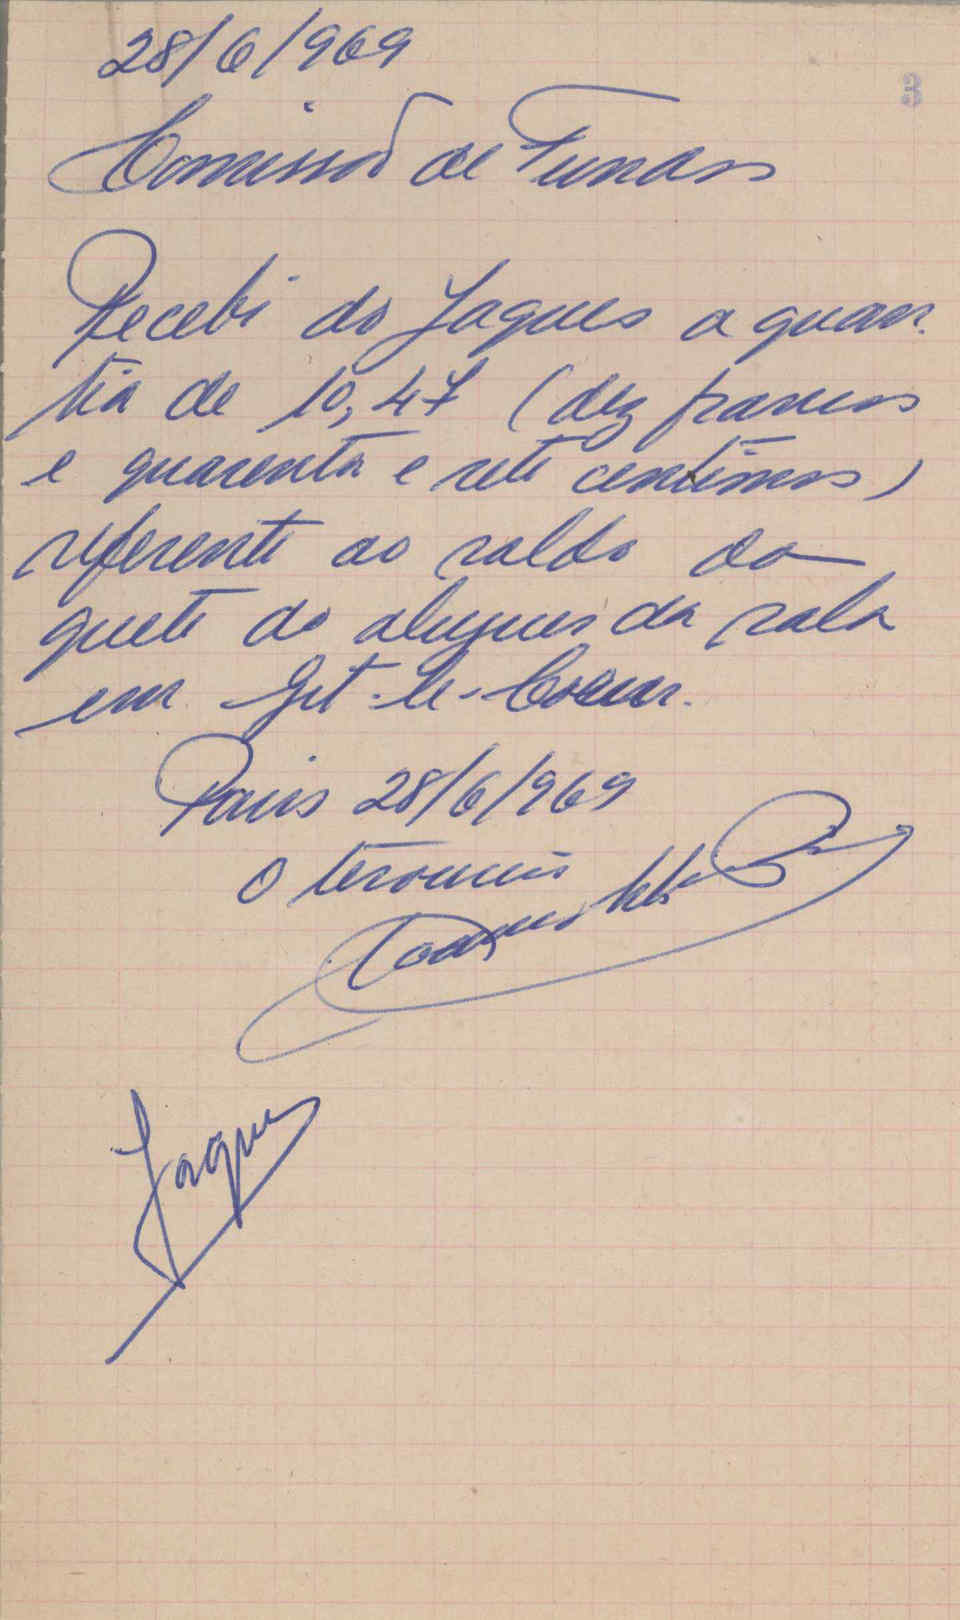 28/6/969
3
Comissão de Fundos
Recebi do Jaques a quan-
tia de 10,47 (dez francos
e quarenta e sete centimos)
referente ao saldo da
quete do aluguer da sala
em Git-le-Coeur.
Paris 28/6/969
O tesoureiro
Jaques